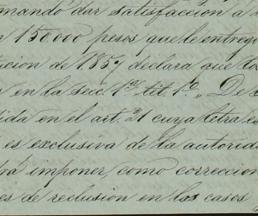 mando dar satisfacción a
150000 pesos que le entreg
ución de 1857 declara que to
en la secc. 1ª tít. 1º. "De
ida en el art. 21 cuya letra e
es exclusiva de la autorida
rá imponer, como correccion
es de reclusion en los casos